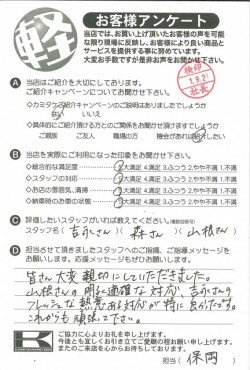 軽
お客様アンケート
当店では、お買い上げ頂いたお客様の声を可能な
限り現場に反映し、お客様により良い商品と
サービスを提供する事に努めています。
大変お手数ですが是非お声をお聞かせ下さい。
検印
1.9.21
社長
A 当店はご紹介を大切にしております。
ご紹介キャンペーンについてお聞かせ下さい。
◇カミタケご紹介キャンペーンのご説明はありましたでしょうか
はい いいえ
◇具体的にご紹介頂ける方とのご関係をお聞かせ頂けますでしょうか
ご親族 ご友人 職場の方 機会があれば紹介したい
B 当店を実際にご利用になった印象をお聞かせ下さい。
◇総合的な満足度 5大満足 4.満足 3.ふつう 2.やや不満 1.不満
◇スタッフの対応 5大満足 4.満足 3.ふつう 2.やや不満 1.不満
◇お店の雰囲気、清掃 5大満足 4.満足 3.ふつう 2.やや不満 1.不満
◇納車時のお車の状態 5大満足 4.満足 3.ふつう 2.やや不満 1.不満
C 評価したいスタッフがいれば教えてください。(複数回答可)
スタッフ名( 吉永さん )( 森さん )( 山根さん )
D 担当させて頂きましたスタッフへのご指摘、ご指導メッセージを
お願いします。応援メッセージもぜひお願いします。
皆さん大変親切にしていただきました。
山根さんの明るく適確な対応が、吉永さんの
フレッシュな熱意ある対応が特に良かったです。
これからも頑張って下さい。
ご協力に心よりお礼を申し上げます。
今後とも宜しくお引き立てご愛顧の程お願い申し上げます。
またのご来店を心からお待ちしております。
担当( 保岡 )